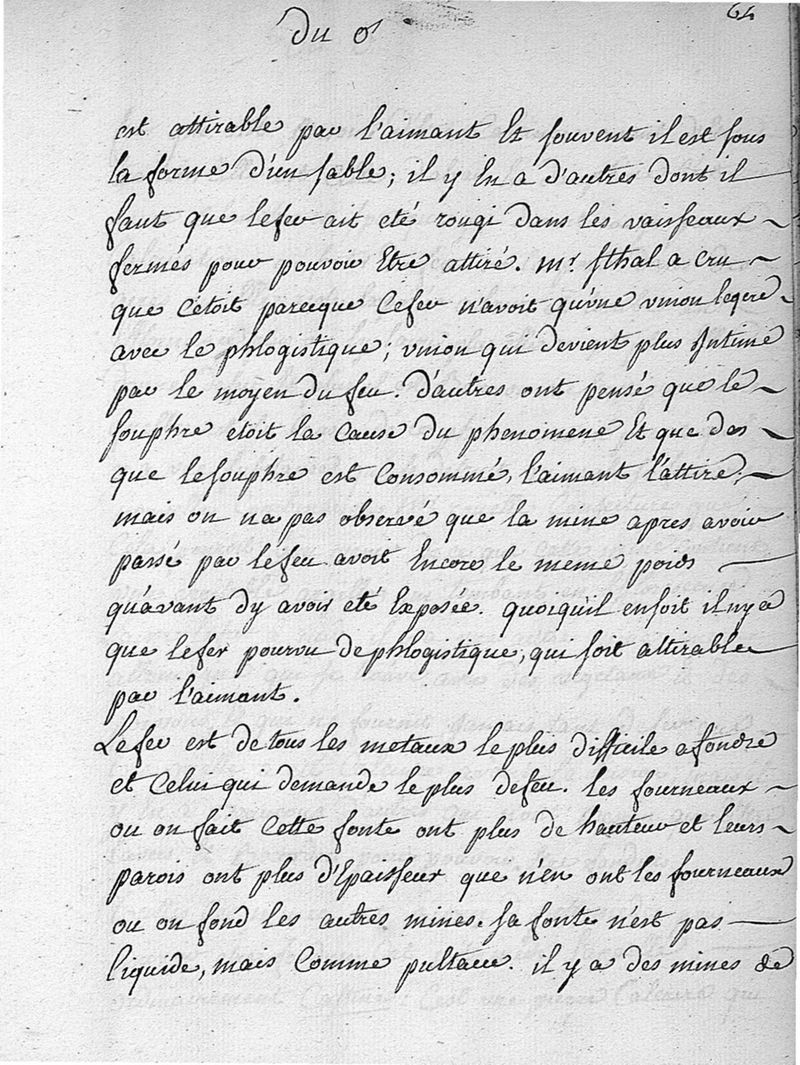 64
du ♂
est attirable par l'aimant Et souvent il est sous
la forme d'un sable; il y En a d'autres dont il
faut que le fer ait eté rougi dans les vaisseaux
fermés pour pouvoir Etre attiré. mr. Sthal a cru
que c'etoit parceque ce fer n'avoit qu'vne vnion legere
avec le phlogistique; vnion qui devient plus Intime
par le moyen du feu. d'autres ont pensé que le
souphre etoit la cause du phenomene Et que des
que le souphre est consommé, l'aimant l'attire;
mais on na pas observé que la mine apres avoir
passé par le feu avoit Encore le meme poids
qu'avant dy avoir eté Exposée. quoiquil en soit il ny a
que le fer pourvu de phlogistique, qui soit attirable
par l'aimant.
Le fer est de tous les metaux le plus difficile a fondre
et celui qui demande le plus de feu. les fourneaux
ou on fait cette fonte ont plus de hauteur et leurs
parois ont plus d'Epaisseur que n'en ont les fourneaux
ou on fond les autres mines. sa fonte n'est pas
liquide, mais comme pultacee. il y a des mines de